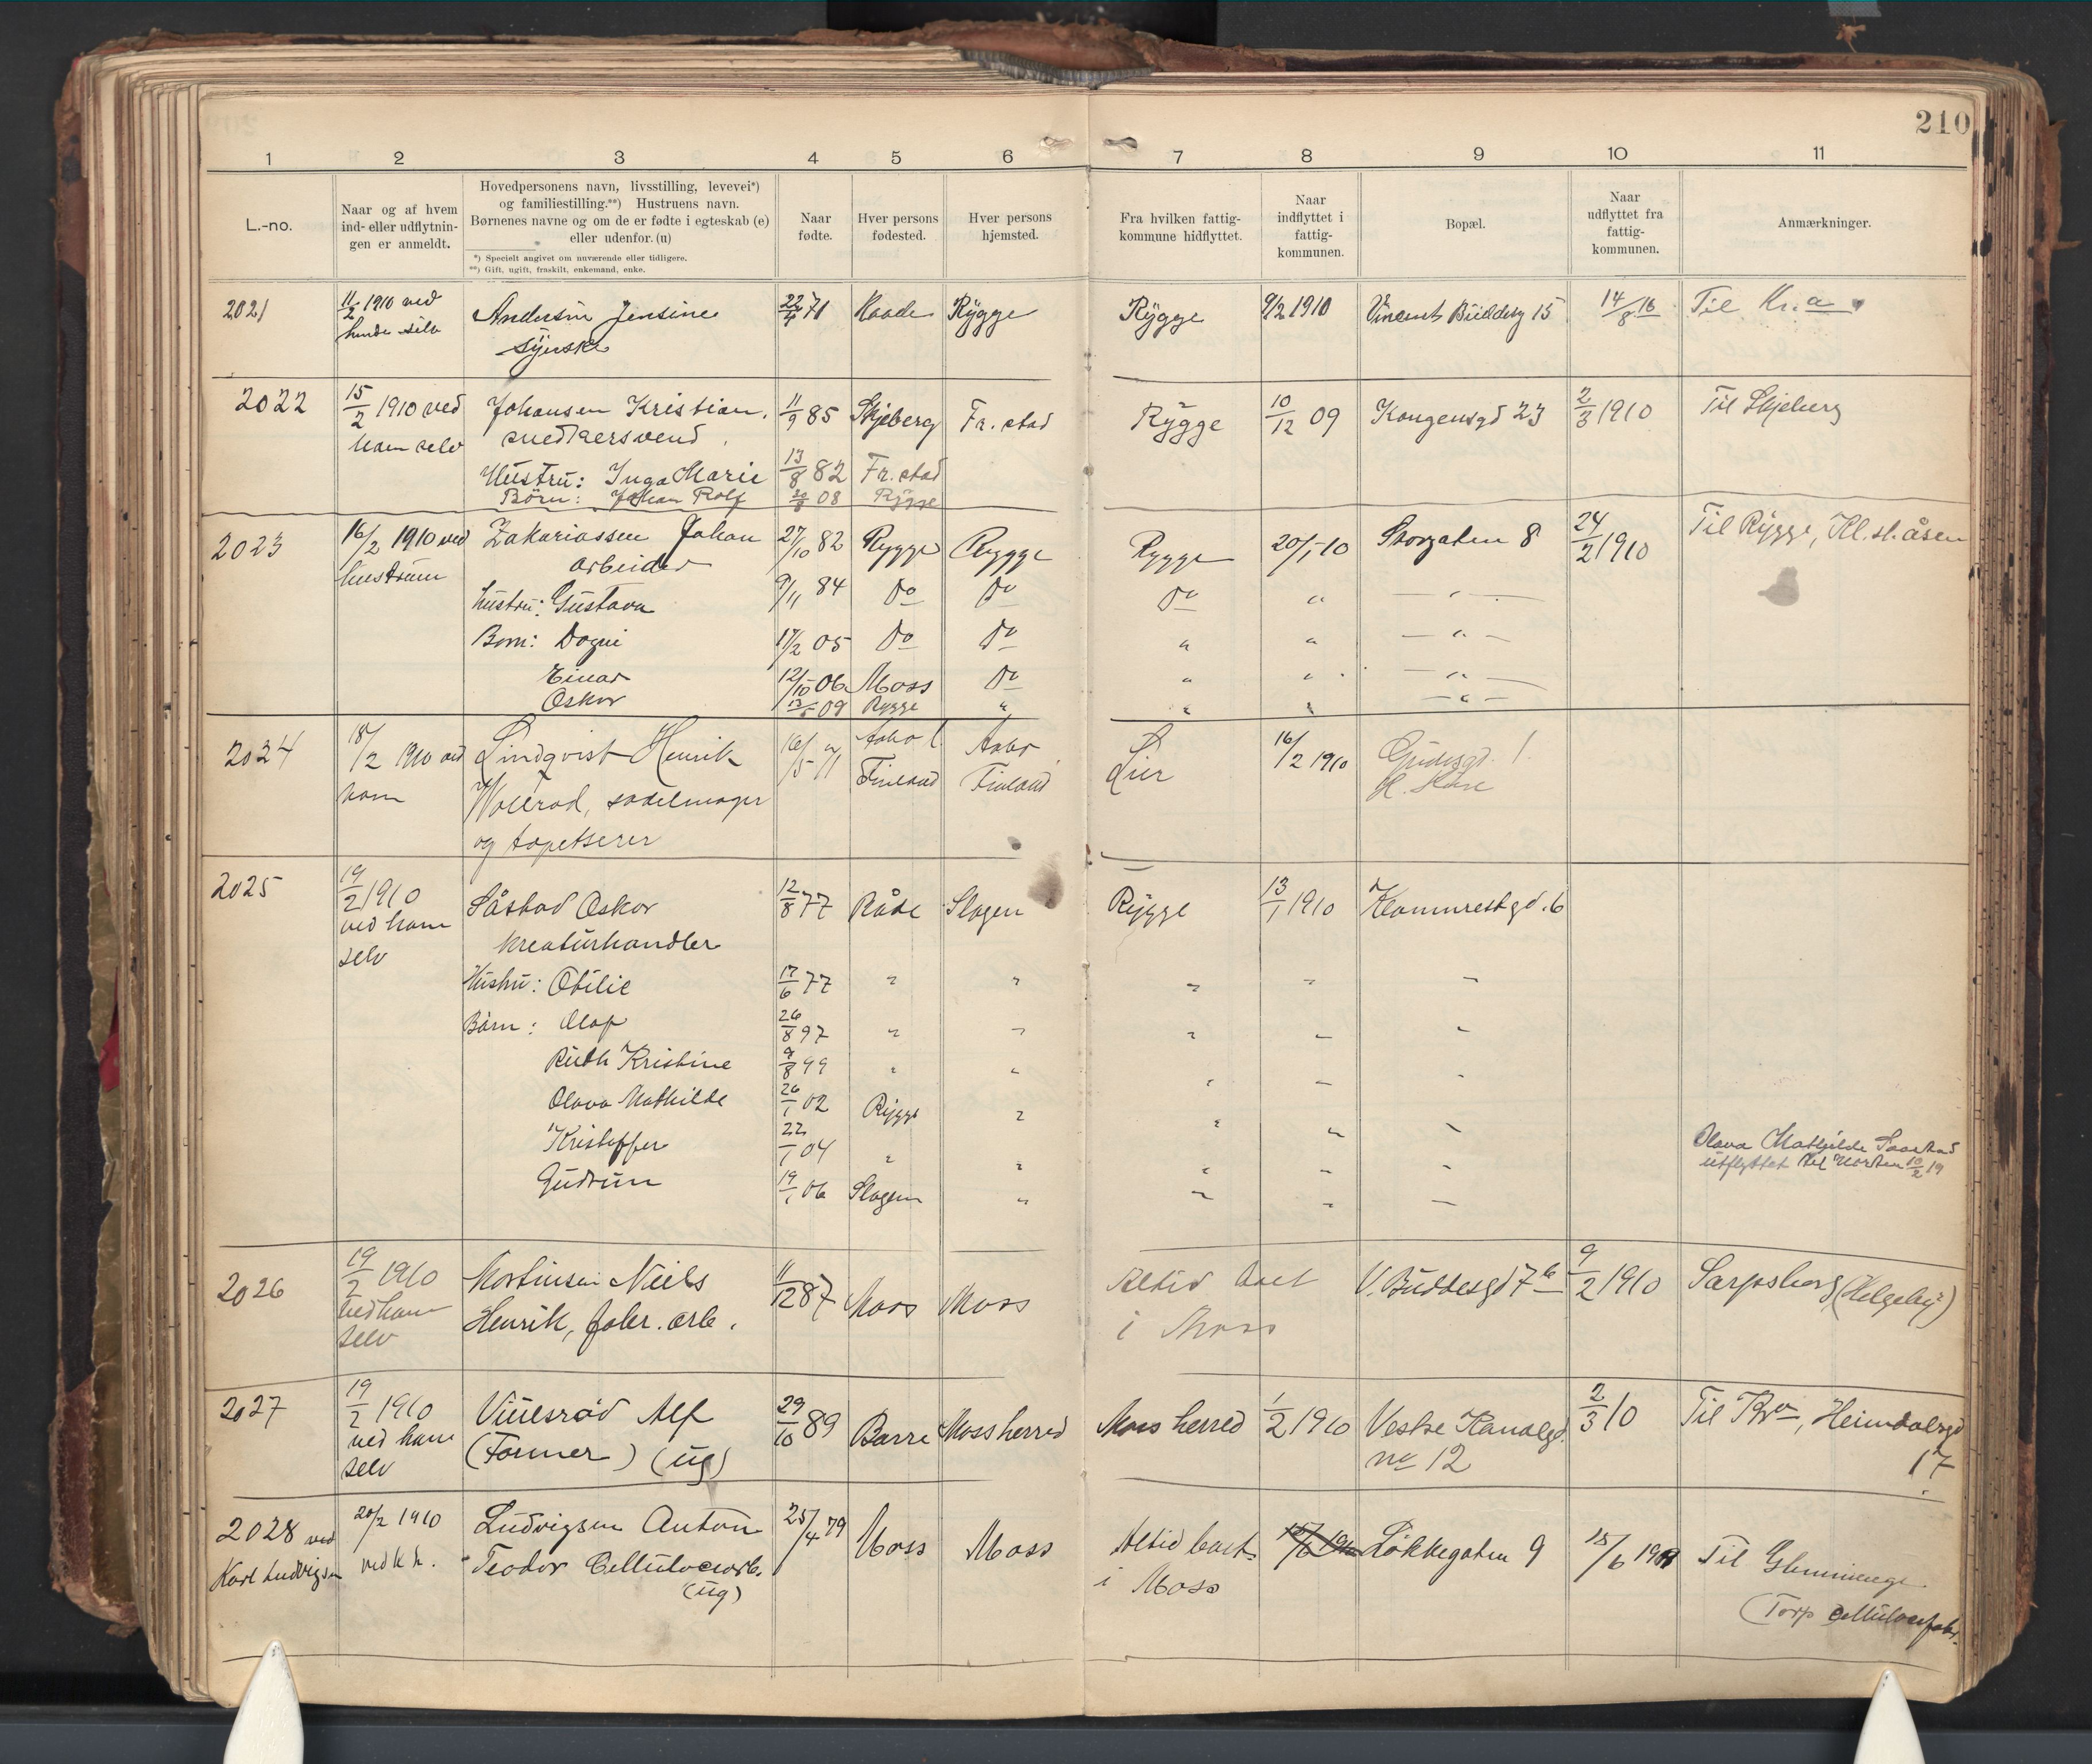 210
1 2 3 4 5 6 7 8 9 10 11
L.-no.
Naar og af hvem
ind- eller udflytnin-
gen er anmeldt.
Hovedpersonens navn, livsstilling, levevei*)
og familiestilling.**) Hustruens navn.
Børnenes navne og om de er fødte i egteskab (e)
eller udenfor. (u)
*) Specielt angivet om nuværende eller tidligere.
**) Gift, ugift, fraskilt, enkemand, enke.
Naar
fødte.
Hver persons
fødested.
Hver persons
hjemsted.
Fra hvilken fattig-
kommune hidflyttet.
Naar
indflyttet i
fattig-
kommunen.
Bopæl.
Naar
udflyttet fra
fattig-
kommunen.
Anmærkninger.
2021 11/2 1910 ved Andersen Jensine 22/4 71 Raade Rygge Rygge 9/2 1910 Vincent Buddesg 15 14/8 16 Til Kr.a
hende selv syerske
2022 15/2 1910 ved Johansen Kristian, 11/9 85 Skjeberg Fr.stad Rygge 10/12 09 Kongensgd 23 2/3 1910 Til Skjeberg
ham selv snedkersvend
Hustru: Inga Marie 13/8 82 Fr.stad
Børn: Johan Rolf 08 Rygge
2023 16/2 1910 ved Zakariassen Johan 27/10 82 Rygge Rygge Rygge 20/1-10 Storgaten 8 24/2 1910 Til Rygge, Kl.st.åsen
hustruen arbeider
hustru: Gustava 9/11 84 Do Do Do " — " —
Born: Dagni 17/2 05 Do Do " " — " —
Einar 12/10 06 Moss Do " " — " —
Oskar 09 Rygge " " " — " —
2024 18/2 1910 ved Lindqvist Henrik 16/5 71 Aabo i Aabo Lier 16/2 1910 Gudesgd. 1
ham Wollrad, sadelmager Finland Finland
og tapetserer
2025 19/2 1910 Såstad Oskar 12/8 77 Råde Slagen Rygge 13/1 1910 Klommrestgd. 6
ved ham kreaturhandler
selv
Hustru: Otilie 17/6 77 " " " " "
Börn: Olaf 26/8 97 " " " " "
Ruth Kristine 9/8 99 " " " " "
Olava Mathilde 26/1 02 Rygge " " " "
Kristoffer 22/1 04 " " " " " Olava Mathilde Saastad
utflyttet til Horten 10/2 19
Gudrun 19/1 06 Slagen " " " "
2026 19/2 1910 Martinsen Niels 11/12 87 Moss Moss Altid boet V. Buddesgd 7b 9/2 1910 Sarpsborg (Helgeby)
ved ham Henrik, fabr. arb. i Moss
selv
2027 19/2 1910 Vinesrød Alf 29/10 89 Borre Moss herred Moss herred 1/2 1910 Vestre Kanalgd. 2/3 10 Til Kr.a, Heimdalsgd
ved ham (Former) (ug) no 12 17
selv
2028 ved 20/2 1910 Ludvigsen Anton 25/4 79 Moss Moss Altid boet Løkkegaten 9 15/6 1909 Til Glemminge
Karl Ludvigsen ved k. h. Teodor Cellulosearb. i Moss
(ug) (Torp cellulosefabr.